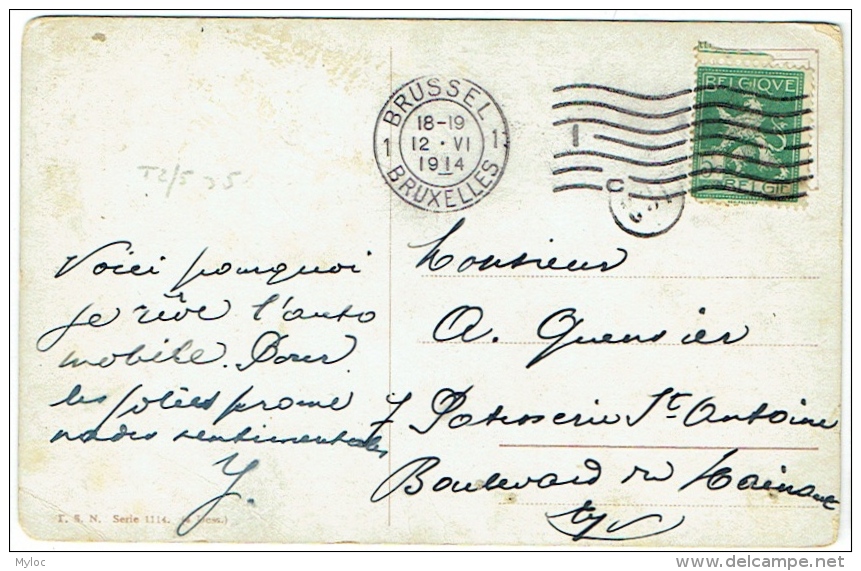 BRUSSEL
18-19
12 · VI
1914
1 1
BRUXELLES
BELGIQUE
5
BELGIE
T2/5 25
Voici pourquoi
je rêve l'auto
mobile. Pour
les jolies prome
nades sentimentales
Y.
Monsieur
A. Quensier
7 Patisserie St Antoine
Boulevard du Hainaut
T. S. N. Serie 1114. (4 Dess.)
Myloc
http://delcampe.net